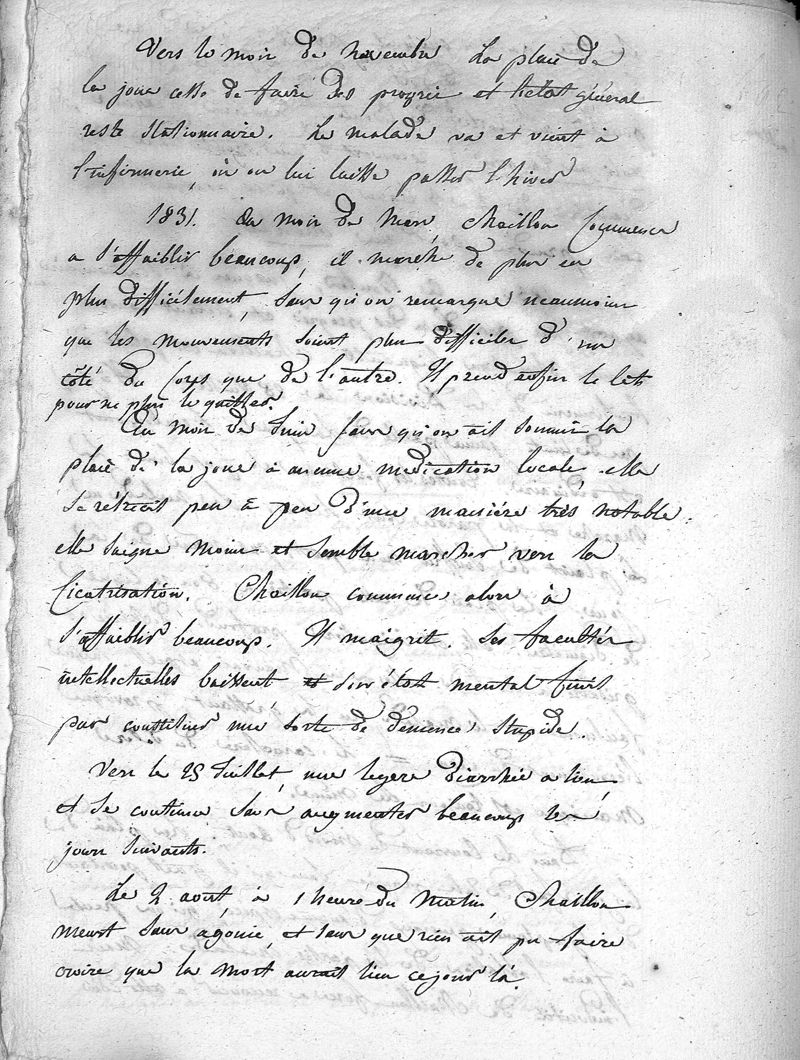 Vers le mois de novembre la plaie de
la joue cesse de faire des progrès et l'état général
reste stationnaire. Le malade va et vient à
l'infirmerie, où on lui laisse passer l'hiver
1831. Au mois de Mars, Chaillou commence
a s'affaiblir beaucoup, il marche de plus en
plus difficilement, sans qu'on remarque neaumoins
que les mouvements soient plus difficiles d'un
côté du corps que de l'autre. Il prend enfin le lit
pour ne plus le quitter.
Au mois de Juin sans qu'on ait soumis la
plaie de la joue à aucune medication locale, elle
se rétrécit peu à peu d'une manière très notable,
elle saigne moins et semble marcher vers la
Cicatrisation. Chaillou commence alors à
s'affaiblir beaucoup. Il maigrit. Ses facultés
intellectuelles baissent et son état mental finit
par constituer une sorte de démence stupide.
Vers le 25 Juillet, une legere diarrhée a lieu
et se continue sans augmenter beaucoup les
jours suivants.
Le 2 août, à 1 heure du matin, Chaillou
meurt sans agonie, et sans que rien ait pu faire
croire que la mort aurait lieu ce jour là.